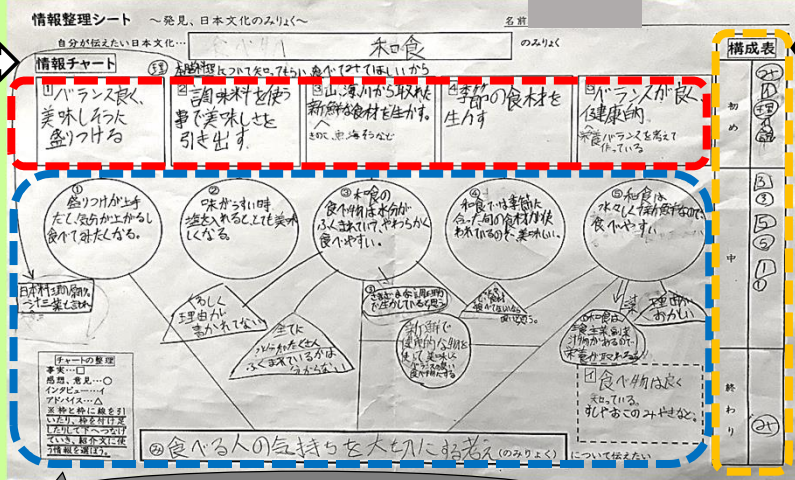 情報整理シート ～発見、日本文化のみりょく～ 名前
自分が伝えたい日本文化… 和食 のみりょく
情報チャート
理 について知ってもらい食べてみてほしいから
1 バランス良く、
美味しそうに
盛りつける
2 調味料を使う
事で美味しさを
引き出す。
3 山、海、川から取れた
新鮮な食材を生かす。
きのこ、魚、海そうなど
4 季節の食材を
生かす
5 バランスが良く、
健康的
栄養バランスを考えて
作っている
① 盛りつけが上手
だと気分が上がるし
食べてみたくなる。
② 味がうすい時
塩を入れるととても美味
しくなる。
③ 和食の
食べ物は水分が
ふくまれていて、やわらかく
食べやすい。
④ 和食では季節に
合った旬の食材が使
われているので、美味しい。
⑤ 和食は
水々しくて新鮮なので、
食べやすい
くわしく
理由が
書かれてない
全てに
水分がたくさん
ふくまれているかは
分からない
新鮮で
健康的な物を
使って美味しく
バランスの良い
食べ物にする
理由が
おかしい
イ 食べ物は良く
知っている。
すしやおこのみやきなど。
チャートの整理
事実…□
感想、意見…○
インタビュー…イ
アドバイス…△
※枠と枠に線を引
いたり、枠を付け足
したりして下へつなげ
ていき、紹介文に使
う情報を選ぼう。
み 食べる人の気持ちを大切にする考え(のみりょく) について伝えたい
構成表
初め
み
イ
理
中
3
③
5
⑤
1
①
終わり
み